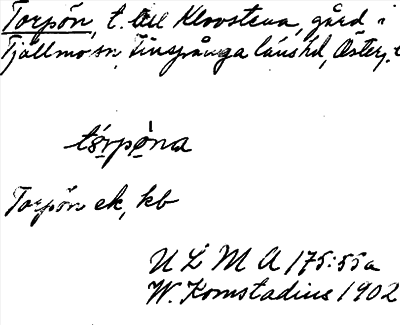 Torpön, t. till Klovstena, gård i
Tjällmo sn, Finspånga länshd, Österg.
tórpòna
Torpön ek, kb
ULMA 175:55a
W. Komstadius 1902